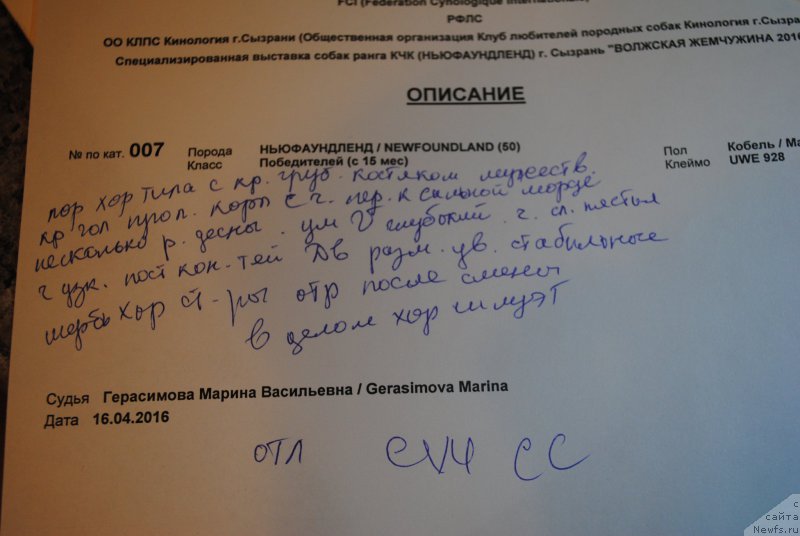 FCI (Federation Cynologique Internationale)
РФЛС
ОО КЛПС Кинология г.Сызрани (Общественная организация Клуб любителей породных собак Кинология г.Сызра
Специализированная выставка собак ранга КЧК (НЬЮФАУНДЛЕНД) г. Сызрань "ВОЛЖСКАЯ ЖЕМЧУЖИНА 2016
ОПИСАНИЕ
№ по кат. 007 Порода НЬЮФАУНДЛЕНД / NEWFOUNDLAND (50) Пол Кобель / Ma
Класс Победителей (с 15 мес) Клеймо UWE 928
хор типа с кр. груб. костяком мужеств.
кр гол проп. корп с ч. пер. к сильной морде
несколько р. десны. ум V глубокий. ч. сл.
ч узк. пост кон-тей Дв разм. ув. стабильные
шерсть хор ст-ры отр после смены
в целом хор силуэт
Судья Герасимова Марина Васильевна / Gerasimova Marina
Дата 16.04.2016
ОТЛ CW4 CC
с
сайта
Newfs.ru